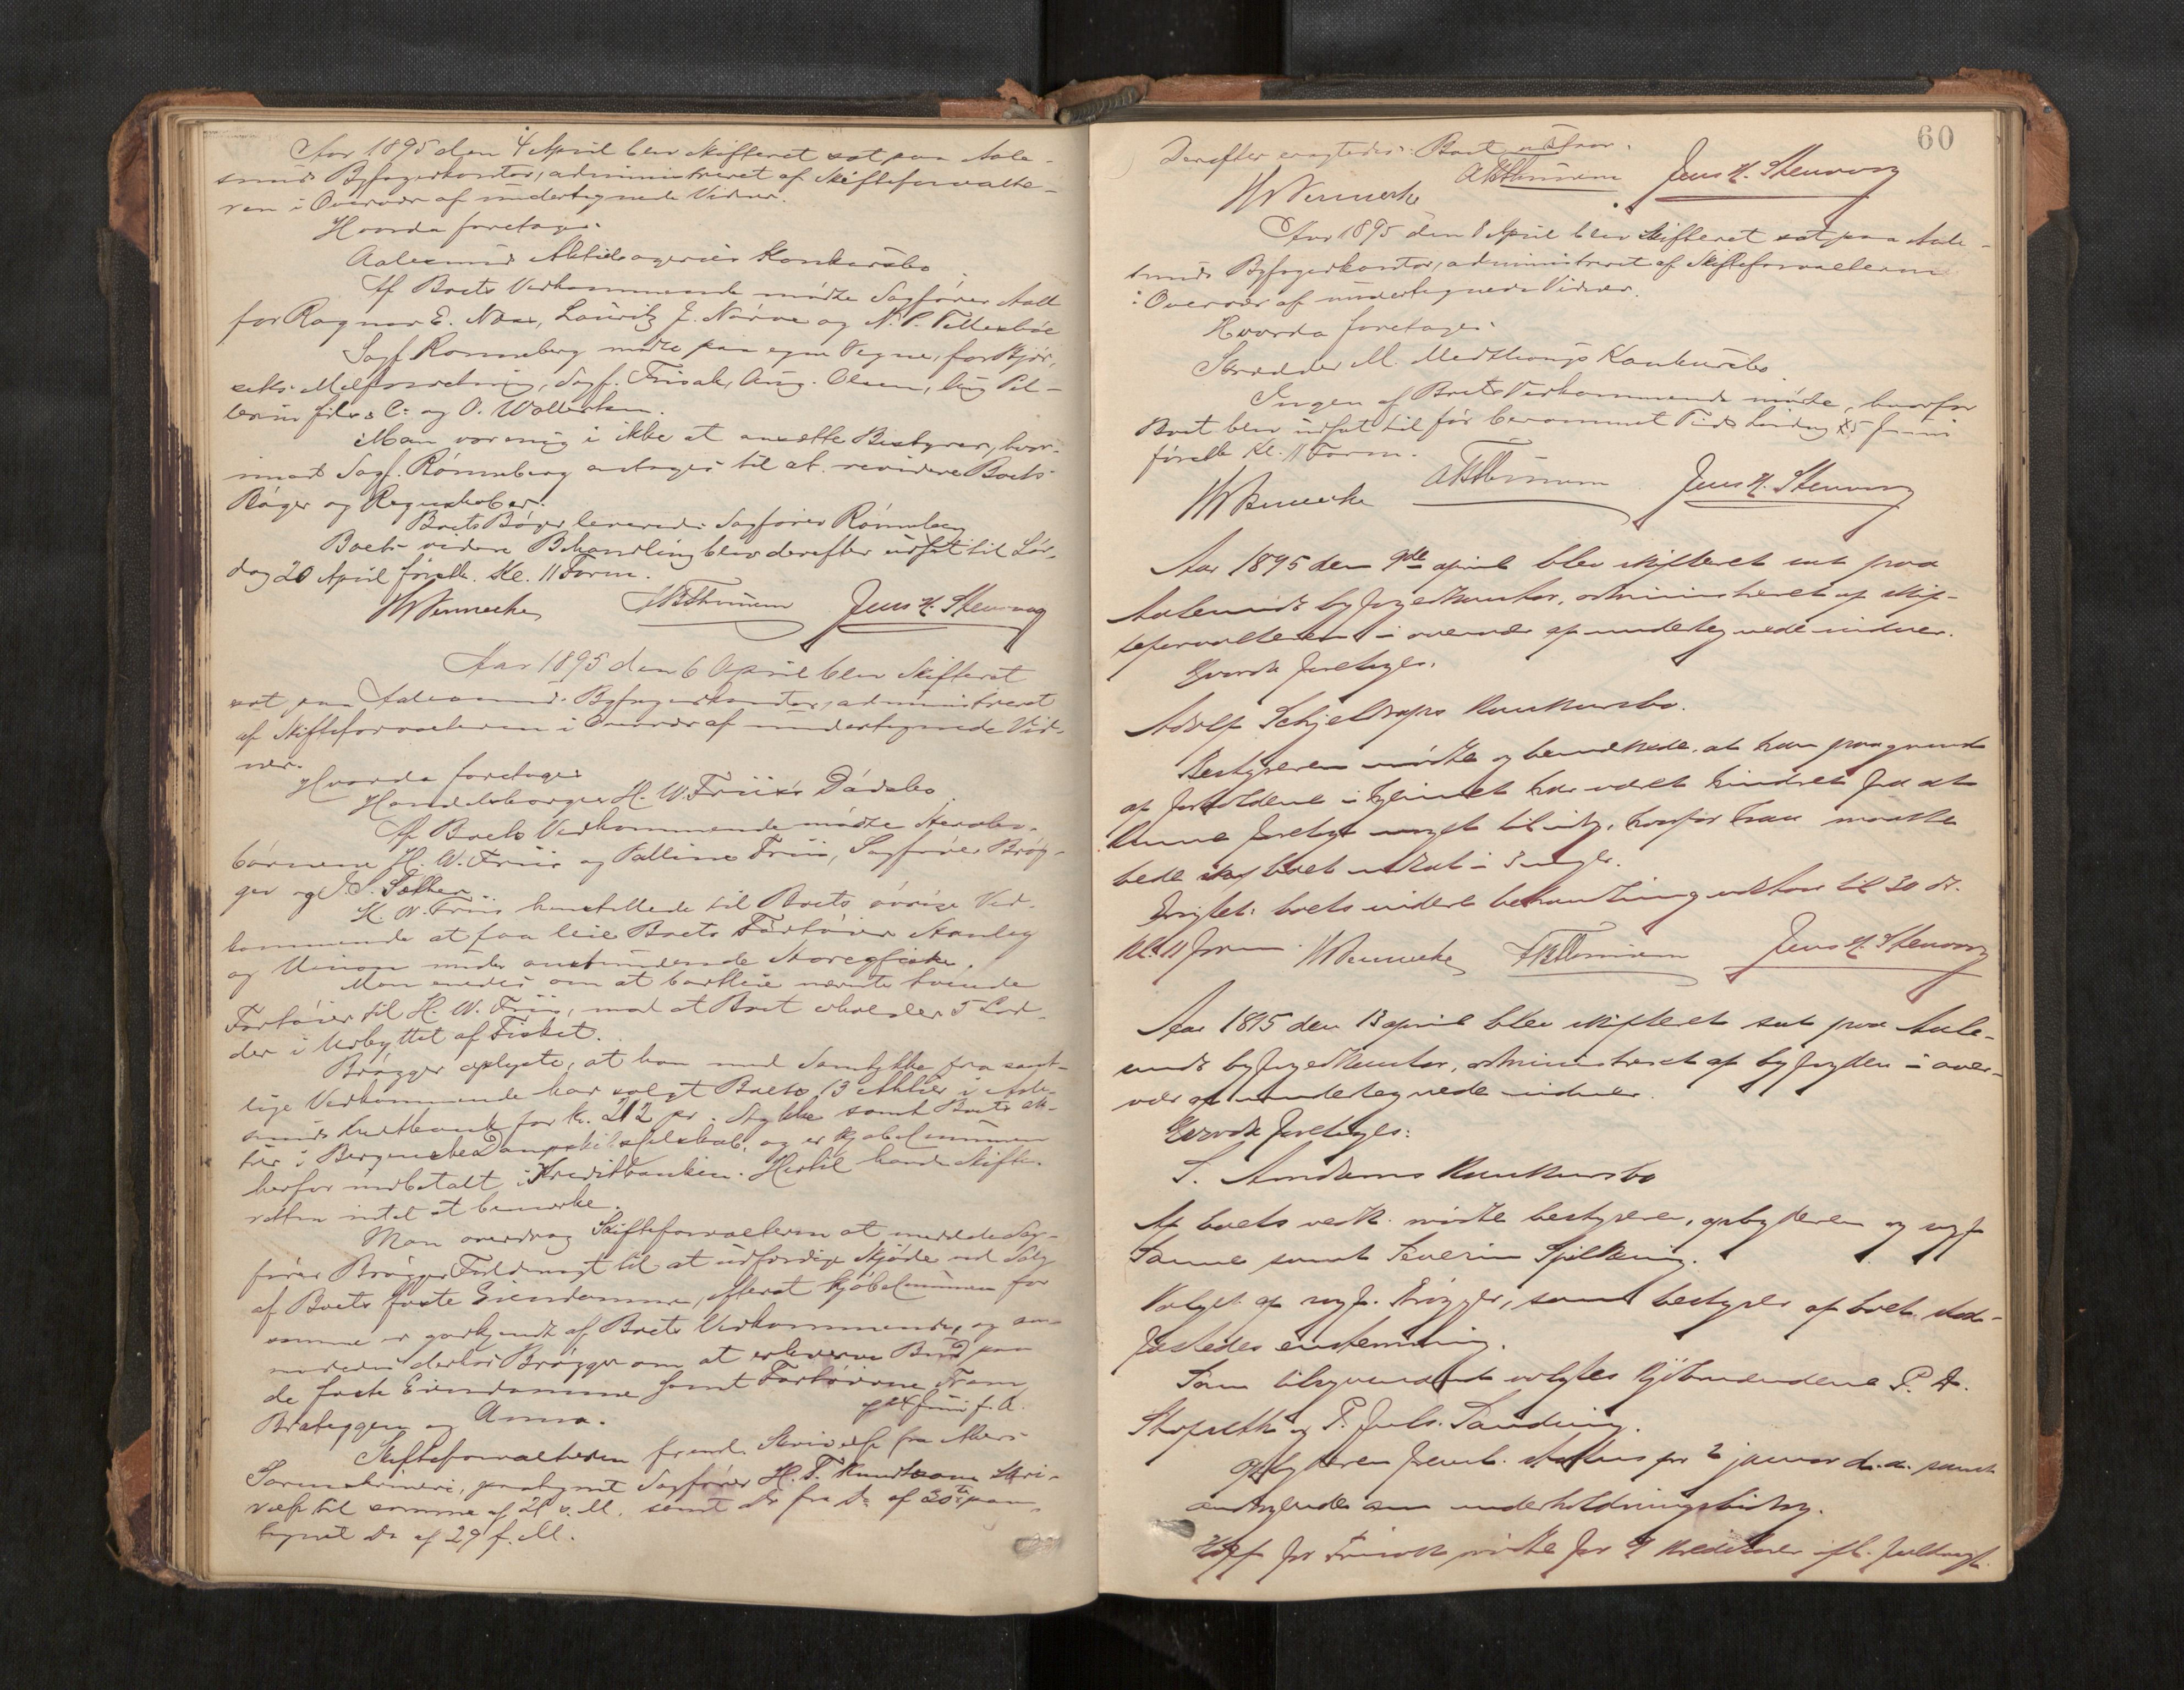 Aar 1895 den 4 April blev Skifteret sat paa Aale-
sunds Byfogedkontor, administreret af Skifteforvalte-
ren i Overvær af undertegnede Vidner.
Hvorda foretages:
Aalesunds Aktiebageries Konkursbo
Af Boets Vedkommende mødte Sagfører Aall
for Ragnar E. Næss, Lauritz J. Nørve og N. P. Tellesbøe
Sagf. Rønneberg mødte paa egne Vegne, for
Sagf. Frisak, Aug. Olsen,
fils & Co og O. Wollertsen.
Man var enig i ikke at ansætte Bestyrer, hvor-
imod Sagf. Rønneberg antages til at revidere Boets
Bøger og Regnskaber.
Boets Bøger leveredes Sagfører Rønneberg
Boets videre Behandling blev derefter udsat til Lør-
dag 20 April førstk. Kl. 11 Form.
Jens K. Stenvaag
Aar 1895 den 6 April blev Skifteret
sat paa Aalesunds Byfogedkontor, administreret
af Skifteforvalteren i Overvær af undertegnede Vid-
ner.
Hvorda foretages
Handelsborger H. W. Friis's Dødsbo.
Af Boets Vedkommende mødte Stervbo-
børnene H. W. Friis og Palline Friis, Sagfører Brøg-
ger og J. S. Sæther.
H. W. Friis henstillede til Boets øvrige Ved-
kommende at faa leie Boets Fartøier
og Union under anstundende Storegfiske.
Man enedes om at bortleie nævnte tvende
Fartøier til H. W. Friis, mod at Boet erholder 5 Lod-
der i Udbyttet af Fisket.
Brøgger oplyste, at han med Samtykke fra samt-
lige Vedkommende har solgt Boets 13 Aktier i Aale-
sunds Kreditbank for Kr. 212 pr. Stykke samt Boets Ak-
tier i Bergenske Dampskibsselskab, og er Kjøbesummen
herfor indbetalt i Kreditbanken. Hertil havde Skifte-
retten intet at bemærke.
Man overdrog Skifteforvalteren at meddele Sag-
fører Brøgger Fuldmagt til at udfærdige Skjøde ved Salg
af Boets faste Eiendomme, efterat Kjøbesummen for
samme er godkjendt af Boets Vedkommende, og an-
modedes derhos Brøgger om at erhverve Bud paa
de faste Eiendomme samt Fartøierne Fram
Brateggen og Anna.
Skifteforvalteren freml. Skrivelse fra Akers
paategnet Sagfører H. T. Knudtzons Skri-
velse til samme af 21 s. M. samt Do fra Do af 20de paa-
tegnet Do af 29 f. M.
60
Derefter eragtedes: Boet udstaar.
Jens K. Stenvaag
Aar 1895 den 8 April blev Skifteret sat paa Aale-
sunds Byfogedkontor, administreret af Skifteforvalteren
i Overvær af undertegnede Vidner.
Hvorda foretages:
Skrædder M. Konkursbo
Ingen af Boets Vedkommende mødte, hvorfor
Boet blev udsat til før berammet Tid Lørdag 15 Juni
førstk Kl. 11 Form.
Jens K. Stenvaag
Aar 1895 den 9de april blev skifteret sat paa
Aalesunds byfogedkontor, administreret af skif-
teforvalteren i overvær af undertegnede vidner.
Hvorda foretages.
Adolf Schjeldrups Konkursbo.
Bestyreren mødte og bemærkede, at han paa grund
af forholdene i har været hindret fra at
kunne foretage noget til idag, hvorfor han maatte
bede boet udsat i 3 uger.
Eragtet: boets videre behandling udstaar til 30 ds.
kl. 11 form.
Jens K. Stenvaag
Aar 1895 den 13 april blev skifteret sat paa Aale-
sunds byfogedkontor, administreret af byfogden i over-
vær af undertegnede vidner.
Hvorda foretages:
S. Amdams Konkursbo
Af boets vedk. mødte bestyreren, opbyderen og sagf
samt Severin Spilkevig.
Valget af sagf. Brøgger, som bestyrer af boet stad-
fæstedes enstemmig.
Som tilsynsmænd valgtes kjøbmændene P. A.
og P. Juls. Sandvig.
Opbyderen freml. status pr 2 januar d. a. samt
andragende om underholdningsbidrag.
mødte for 9 kreditorer ifl. fuldmagt